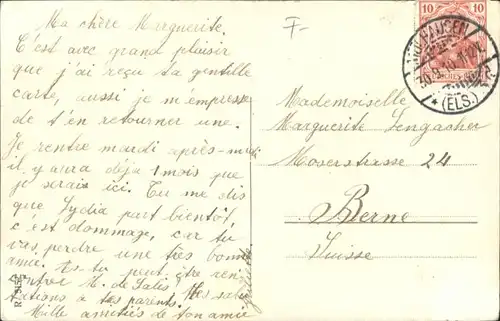 Ma chère Marguerite.
C'est avec grand plaisir
que j'ai reçu ta gentille
carte, aussi je m'empresse
de t'en retourner une.
Je rentre mardi après-midi
il y aura déjà 1 mois que
je serais ici. Tu me dis
que Lydia part bientôt,
c'est dommage, car tu
vas perdre une très bonne
amie. Es-tu peut être ren-
contrer M. de Salis, Mes salu-
tations à tes parents.
Mille amitiés de ton amie
F-
10 10
MÜLHAUSEN
(ELS.)
Mademoiselle
Marguerite Lengacher
Moserstrasse 24
Berne
Suisse